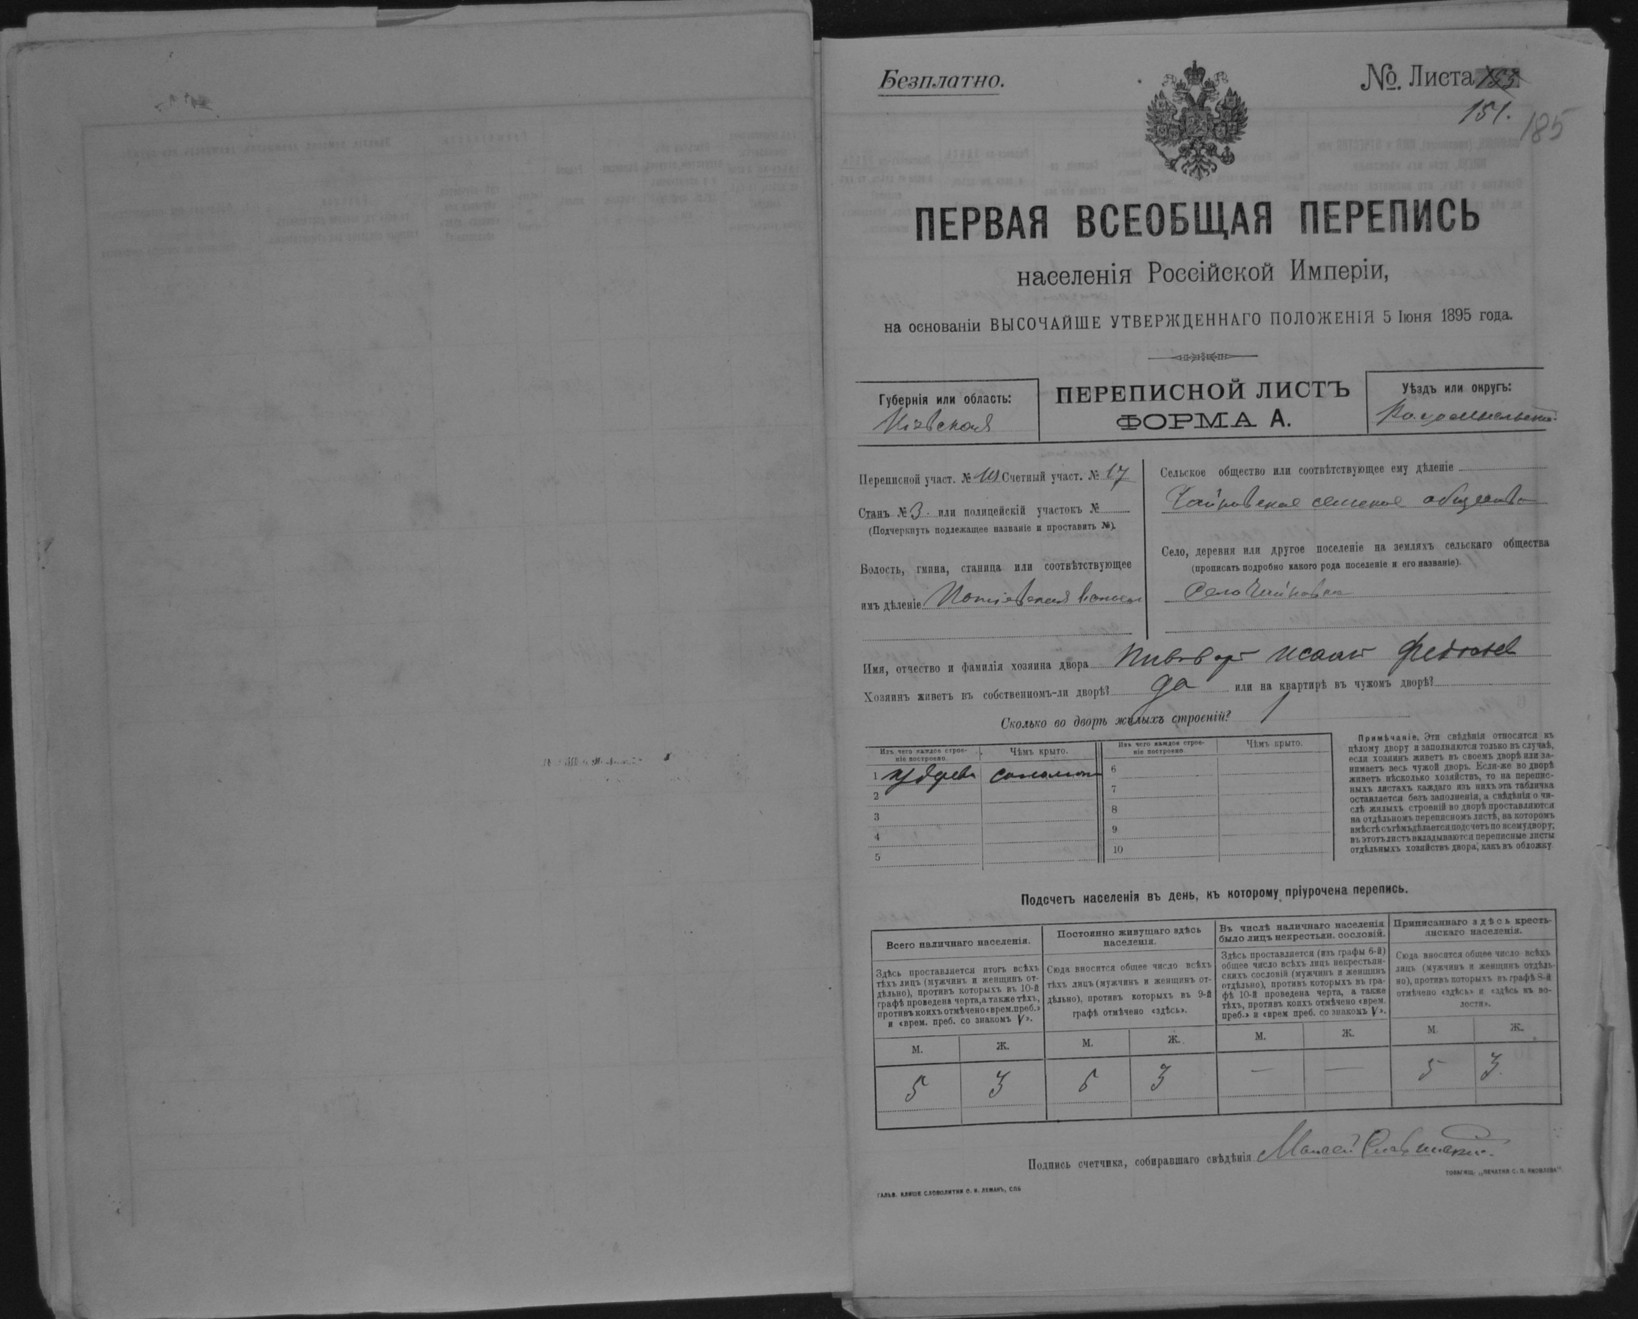 Безплатно.
№. Листа
151.
185
ПЕРВАЯ ВСЕОБЩАЯ ПЕРЕПИСЬ
населенія Россійской Имперіи,
на основаніи ВЫСОЧАЙШЕ УТВЕРЖДЕННАГО ПОЛОЖЕНІЯ 5 Іюня 1895 года.
Губернія или область:
Кіевская
ПЕРЕПИСНОЙ ЛИСТЪ
ФОРМА А.
Уѣздъ или округъ:
Переписной участ. № Счетный участ. № 17
Станъ № 3. или полицейскій участокъ №
(Подчеркнуть подлежащее названіе и проставить №).
Волость, гмина, станица или соотвѣтствующее
имъ дѣленіе
Сельское общество или соотвѣтствующее ему дѣленіе
Чайковское сельское общество
Село, деревня или другое поселеніе на земляхъ сельскаго общества
(прописать подробно какого рода поселеніе и его названіе).
Село Чайковка
Имя, отчество и фамилія хозяина двора Пивоваръ Исаакъ
Хозяинъ живетъ въ собственномъ-ли дворѣ? да или на квартирѣ въ чужомъ дворѣ?
Сколько во дворѣ жилыхъ строеній? 1
Изъ чего каждое строеніе построено.
Чѣмъ крыто.
Изъ чего каждое строеніе построено.
Чѣмъ крыто.
1 изъ дерева соломою
2
3
4
5
6
7
8
9
10
Примѣчаніе. Эти свѣдѣнія относятся къ
цѣлому двору и заполняются только въ случаѣ,
если хозяинъ живетъ въ своемъ дворѣ или за-
нимаетъ весь чужой дворъ. Если-же во дворѣ
живетъ нѣсколько хозяйствъ, то на перепис-
ныхъ листахъ каждаго изъ нихъ эта табличка
оставляется безъ заполненія, а свѣдѣнія о чи-
слѣ жилыхъ строеній во дворѣ проставляются
на отдѣльномъ переписномъ листѣ, на которомъ
вмѣстѣ съ тѣмъ дѣлается подсчетъ по всему двору;
въ этотъ листъ вкладываются переписные листы
отдѣльныхъ хозяйствъ двора, какъ въ обложку
Подсчетъ населенія въ день, къ которому пріурочена перепись.
Всего наличнаго населенія.
Здѣсь проставляется итогъ всѣхъ
тѣхъ лицъ (мужчинъ и женщинъ от-
дѣльно), противъ которыхъ въ 10-й
графѣ проведена черта, а также тѣхъ,
противъ коихъ отмѣчено «врем. преб.»
и «врем. преб. со знакомъ V».
Постоянно живущаго здѣсь
населенія.
Сюда вносится общее число всѣхъ
тѣхъ лицъ (мужчинъ и женщинъ от-
дѣльно), противъ которыхъ въ 9-й
графѣ отмѣчено «здѣсь».
Въ числѣ наличнаго населенія
было лицъ некрестьян. сословій.
Здѣсь проставляется (изъ графы 6-й)
общее число всѣхъ лицъ некрестьян-
скихъ сословій (мужчинъ и женщинъ
отдѣльно), противъ которыхъ въ гра-
фѣ 10-й проведена черта, а также
тѣхъ, противъ коихъ отмѣчено «врем.
преб.» и «врем преб. со знакомъ V».
Приписаннаго здѣсь кресть-
янскаго населенія.
Сюда вносится общее число всѣхъ
лицъ (мужчинъ и женщинъ отдѣль-
но), противъ которыхъ въ графѣ 8-й
отмѣчено «здѣсь» и «здѣсь въ во-
лости».
М. Ж. М. Ж. М. Ж. М. Ж.
5 3 5 3 — — 5 3
Подпись счетчика, собиравшаго свѣдѣнія
ГАЛЬВ. КЛИШЕ СЛОВОЛИТНИ О. И. ЛЕМАНЪ, СПБ
ТОВАРИЩ. „ПЕЧАТНЯ С. П. ЯКОВЛЕВА"